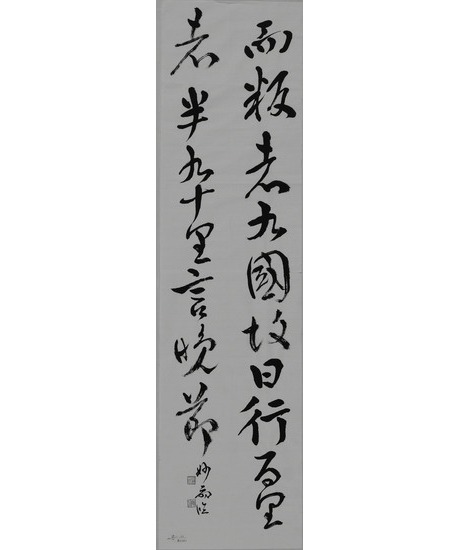 而叛者九國故曰行百里
者半九十里言晚節